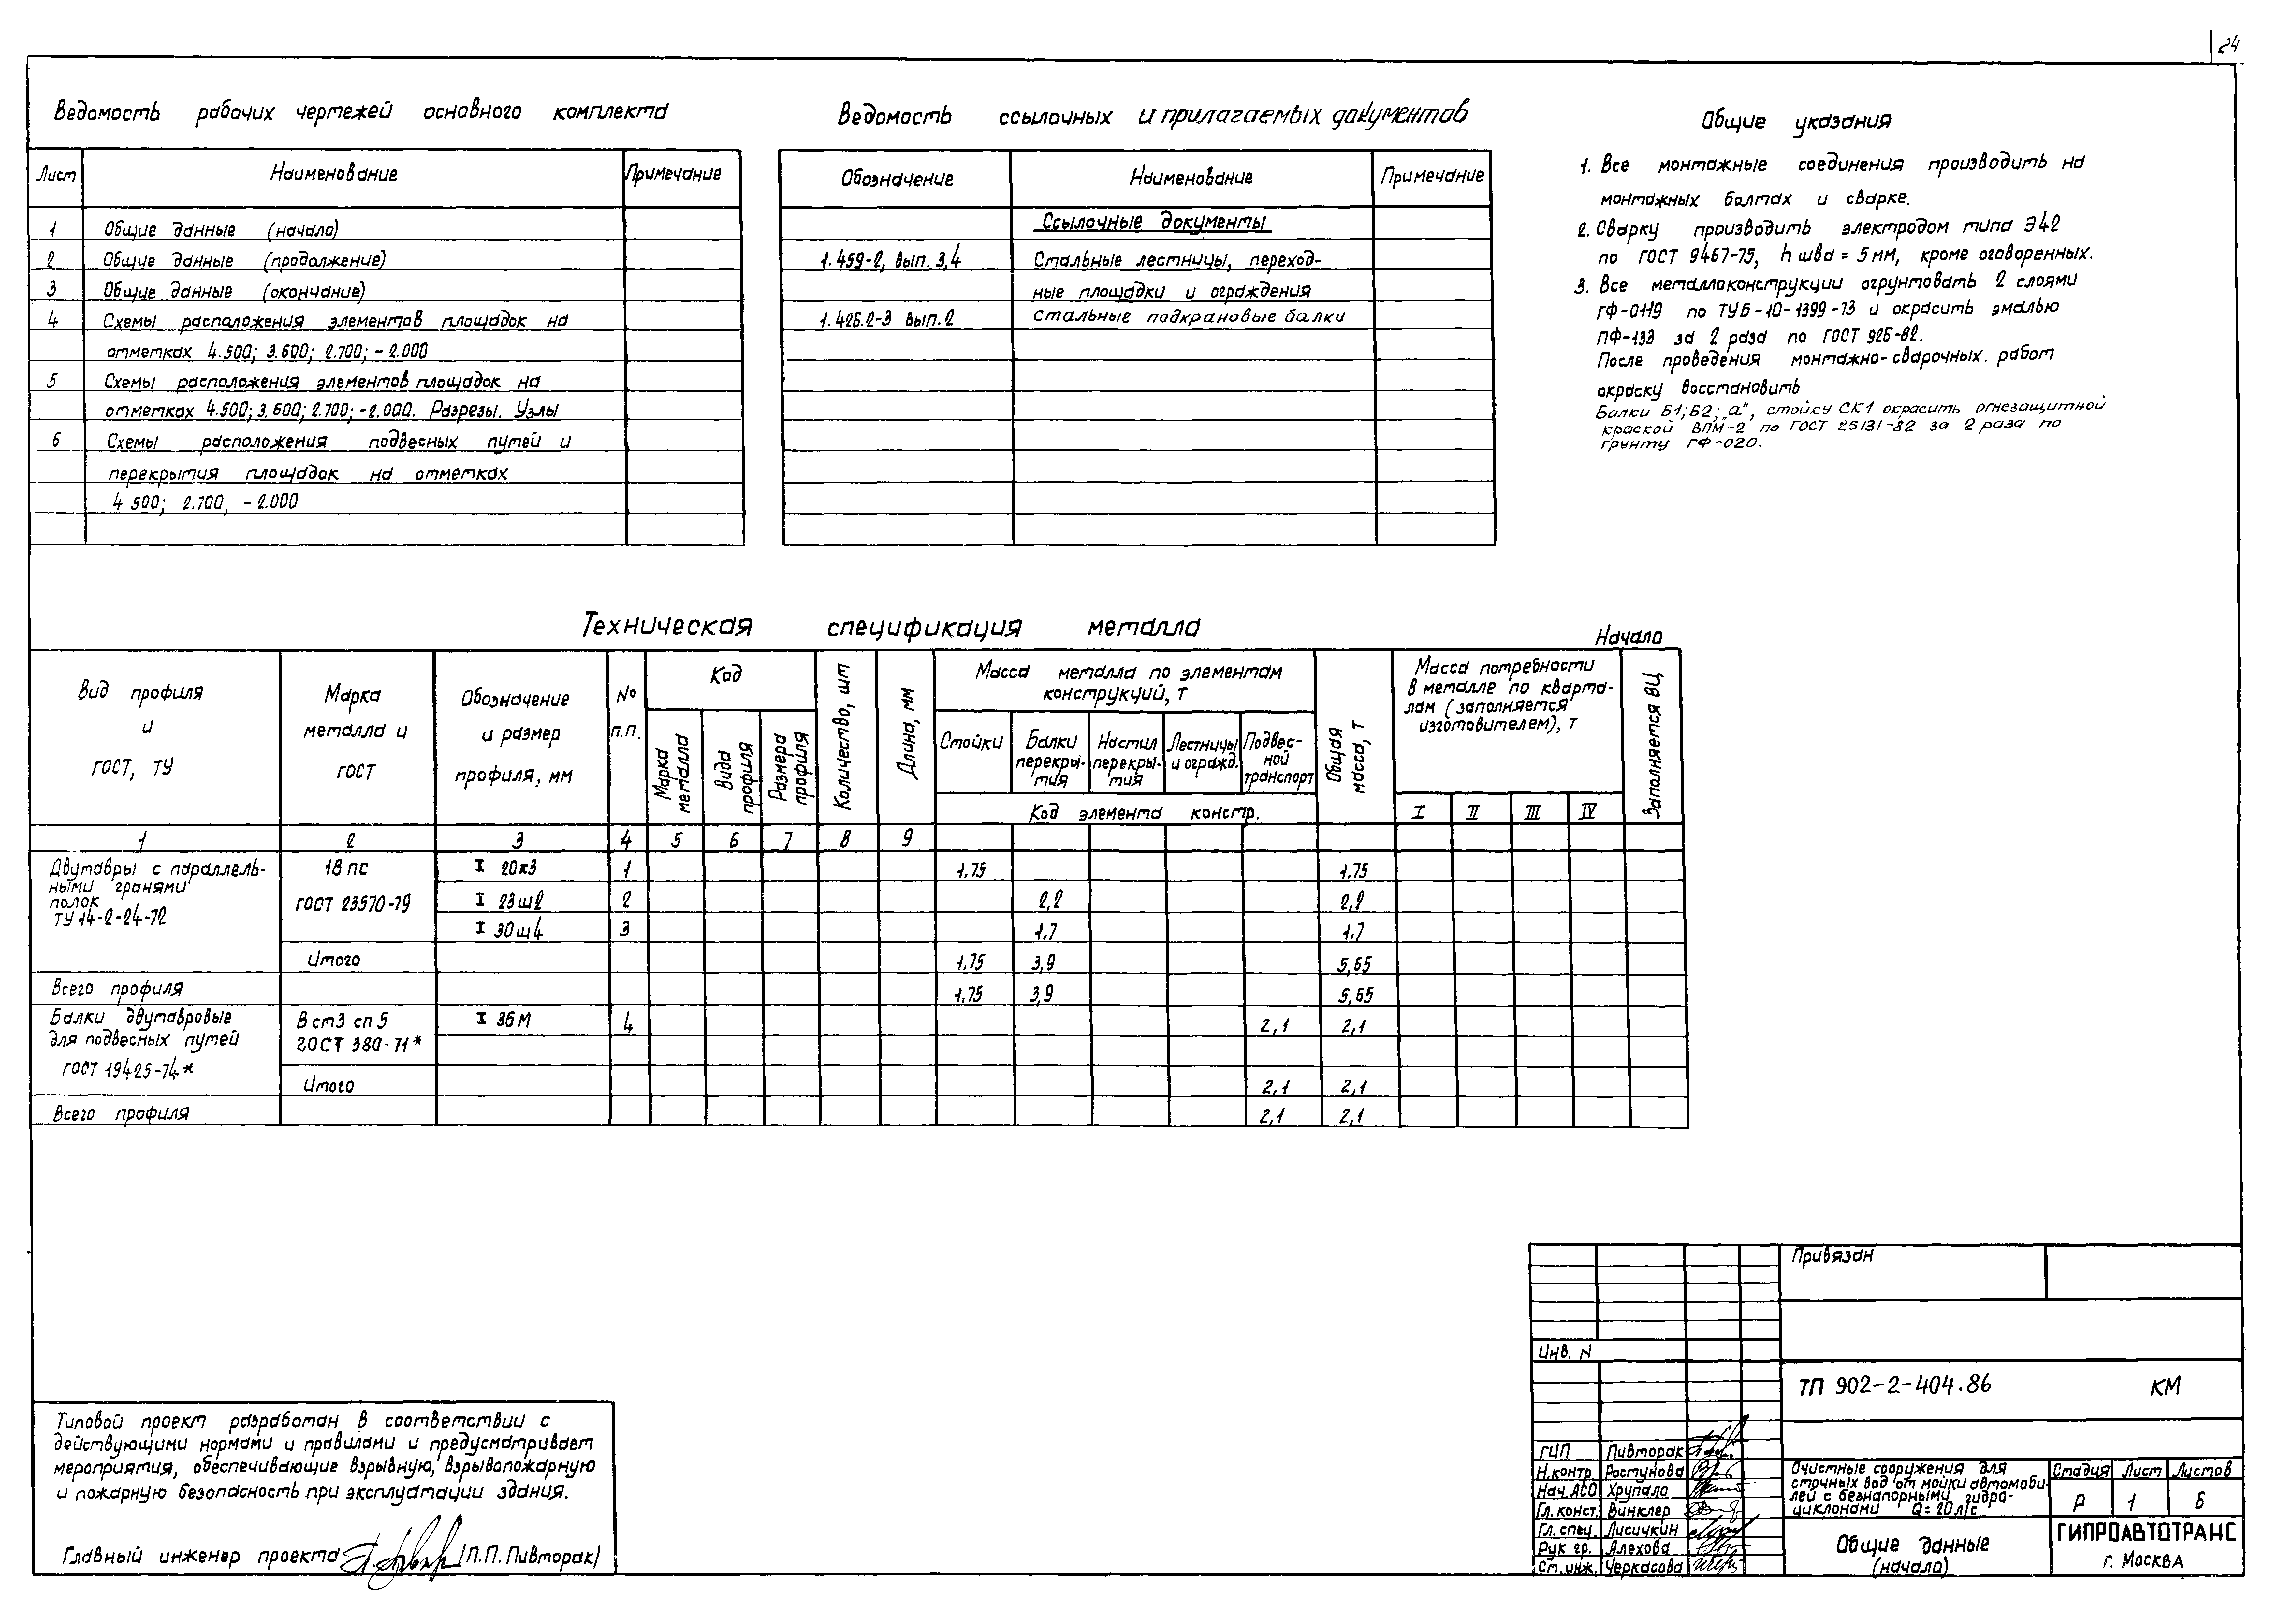 24
Ведомость рабочих чертежей основного комплекта
Лист Наименование Примечание
1 Общие данные (начало)
2 Общие данные (продолжение)
3 Общие данные (окончание)
4 Схемы расположения элементов площадок на
отметках 4.500; 3.600; 2.700; -2.000
5 Схемы расположения элементов площадок на
отметках 4.500; 3.600; 2.700; -2.000. Разрезы. Узлы
6 Схемы расположения подвесных путей и
перекрытия площадок на отметках
4 500; 2.700, -2.000
Ведомость ссылочных и прилагаемых документов
Обозначение Наименование Примечание
Ссылочные документы
1.459-2, вып. 3,4 Стальные лестницы, переход-
ные площадки и ограждения
1.426.2-3 вып.2 Стальные подкрановые балки
Общие указания
1. Все монтажные соединения производить на
монтажных болтах и сварке.
2. Сварку производить электродом типа Э42
по ГОСТ 9467-75, h шва = 5 мм, кроме оговоренных.
3. Все металлоконструкции огрунтовать 2 слоями
ГФ-0119 по ТУ6-10-1399-73 и окрасить эмалью
ПФ-133 за 2 раза по ГОСТ 926-82.
После проведения монтажно-сварочных. работ
окраску восстановить
Балки Б1; Б2; „а", стойку СК1 окрасить огнезащитной
краской ВПМ-2 по ГОСТ 25131-82 за 2 раза по
грунту ГФ-020.
Техническая спецификация металла
Начало
Вид профиля и ГОСТ, ТУ
Марка металла и ГОСТ
Обозначение и размер профиля, мм
№ п.п.
Код
Марка металла
Вида профиля
Размера профиля
Количество, шт
Длина, мм
Масса металла по элементам
конструкций, т
Стойки
Балки перекры-тия
Настил перекры-тия
Лестницы и огражд.
Подвес-ной транспорт
Код элемента констр.
Общая масса, т
Масса потребности
в металле по кварта-
лам (заполняется
изготовителем), т
I II III IV
Заполняется ВЦ
1 2 3 4 5 6 7 8 9
Двутавры с параллель-
ными гранями
полок
ТУ 14-2-24-72
18 пс
ГОСТ 23570-79
I 20к3 1 1,75 1,75
I 23ш2 2 2,2 2,2
I 30ш4 3 1,7 1,7
Итого 1,75 3,9 5,65
Всего профиля 1,75 3,9 5,65
Балки двутавровые
для подвесных путей
ГОСТ 19425-74*
В ст3 сп 5
ГОСТ 380-71*
I 36М 4 2,1 2,1
Итого 2,1 2,1
Всего профиля 2,1 2,1
Типовой проект разработан в соответствии с
действующими нормами и правилами и предусматривает
мероприятия, обеспечивающие взрывную, взрывопожарную
и пожарную безопасность при эксплуатации здания.
Главный инженер проекта (П.П. Пивторак)
Привязан
Инв. N
ТП 902-2-404.86 КМ
ГИП Пивторак
Н.контр. Ростунова
Нач. АСО Хрупало
Гл. конст. Винклер
Гл. спец. Лисичкин
Рук гр. Алехова
Ст. инж. Черкасова
Очистные сооружения для
сточных вод от мойки автомоби-
лей с безнапорными гидро-
циклонами Q = 20 л/с
Стадия Лист Листов
Р 1 6
Общие данные
(начало)
ГИПРОАВТОТРАНС
г. Москва